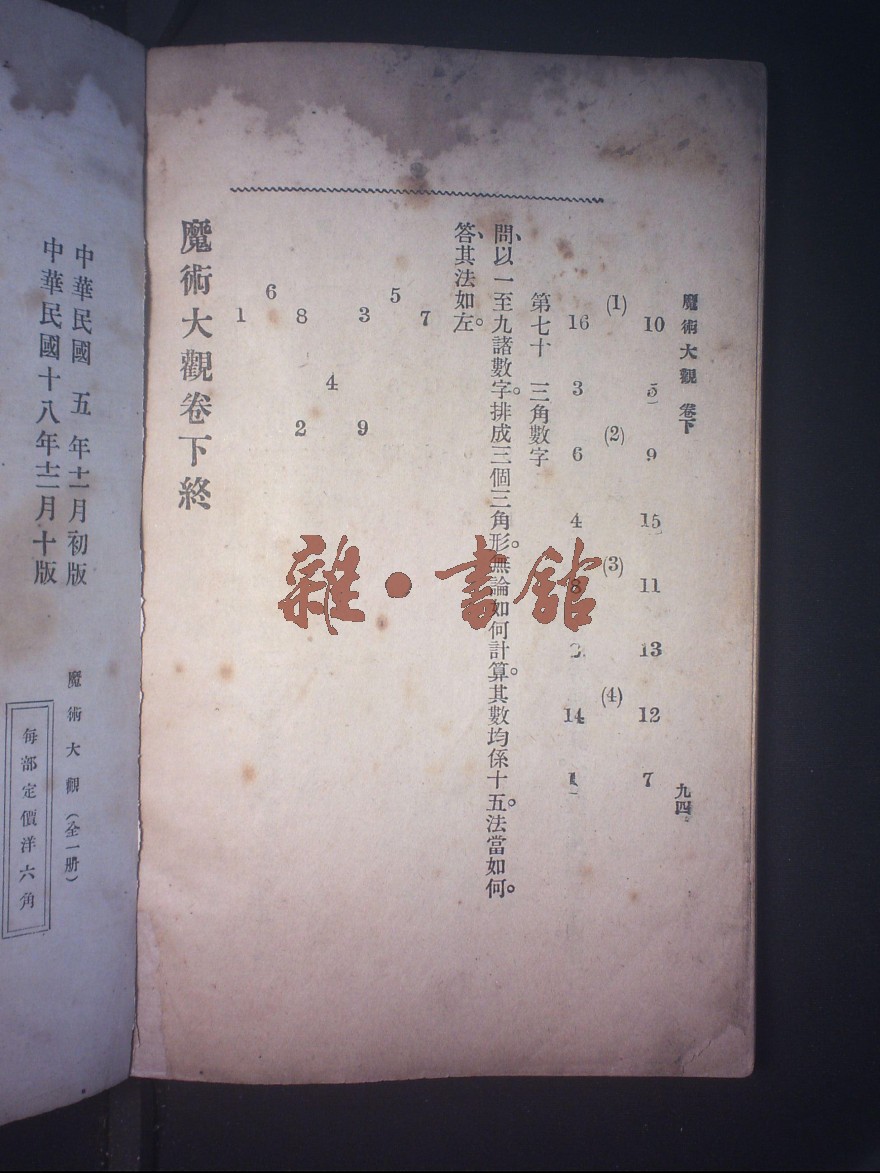 魔術大觀 卷下 九四
10 5 9 15 11 13 12 7
(1) (2) (3) (4)
16 3 6 4 8 2 14 1
第七十 三角數字
問、以一至九諸數字。排成三個三角形。無論如何計算。其數均係十五。法當如何。
答、其法如左。
6 5
1 8 3 7
4
2 9
魔術大觀卷下終
中華民國 五 年十一月初版
中華民國十八年十二月十版
魔術大觀(全一册)
每部定價洋六角
雜·書館